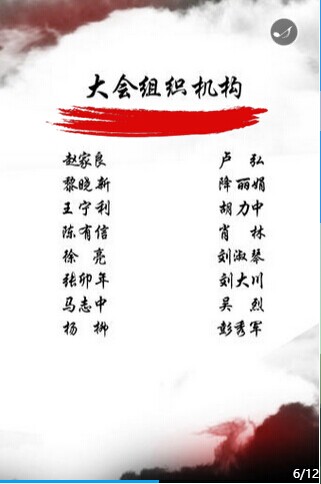 大会组织机构
赵家良 卢 弘
黎晓新 降丽娟
王宁利 胡力中
陈有信 肖 林
徐 亮 刘淑琴
张卯年 刘大川
马志中 吴 烈
杨 柳 彭秀军
6/12